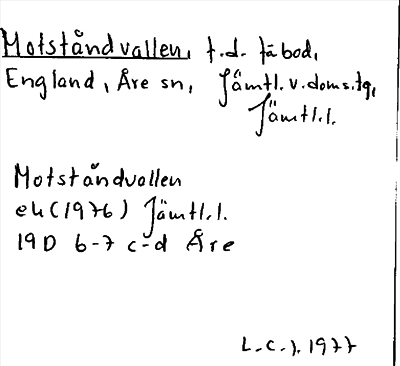 Motståndvallen, f.d. fäbod,
England, Åre sn, Jämtl. v. doms.tg,
Jämtl.l.
Motståndvollen
ek (1976) Jämtl.l.
19D 6-7 c-d Åre
L.C.J. 1977